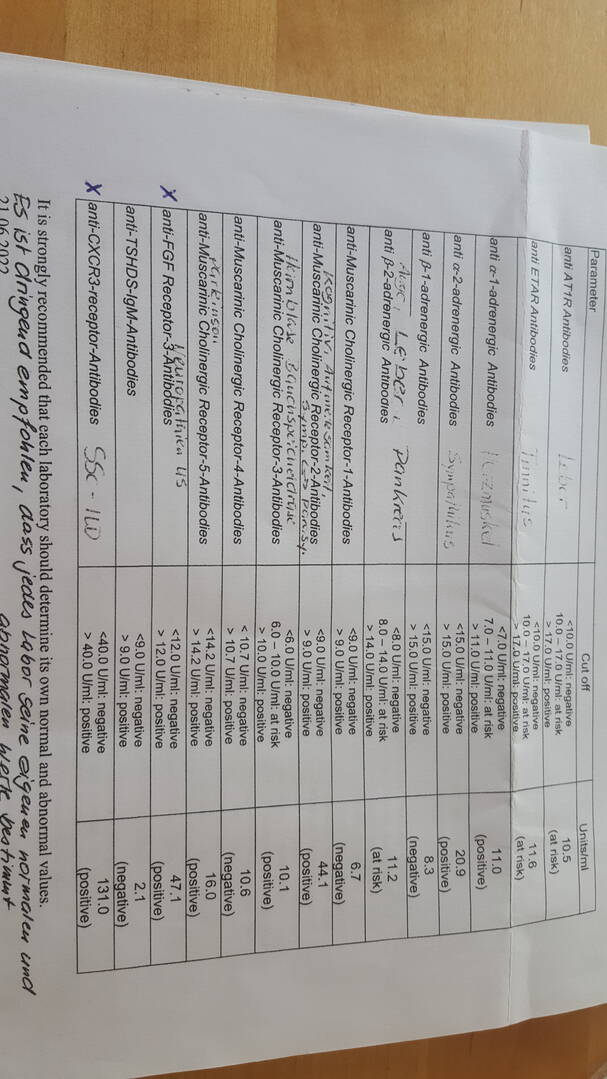 Parameter Cut off Units/ml
anti AT1R Antibodies Leber <10.0 U/ml: negative 10.5
10.0 – 17.0 U/ml: at risk (at risk)
> 17.0 U/ml: positive
anti ETAR Antibodies Tinnitus <10.0 U/ml: negative 11.6
10.0 – 17.0 U/ml: at risk (at risk)
> 17.0 U/ml: positive
anti α-1-adrenergic Antibodies Herzmuskel <7.0 U/ml: negative 11.0
7.0 – 11.0 U/ml: at risk (positive)
> 11.0 U/ml: positive
anti α-2-adrenergic Antibodies Sympathikus <15.0 U/ml: negative 20.9
> 15.0 U/ml: positive (positive)
anti β-1-adrenergic Antibodies <15.0 U/ml: negative 8.3
> 15.0 U/ml: positive (negative)
Auge, Leber, Pankreas
anti β-2-adrenergic Antibodies <8.0 U/ml: negative 11.2
8.0 – 14.0 U/ml: at risk (at risk)
> 14.0 U/ml: positive
anti-Muscarinic Cholinergic Receptor-1-Antibodies <9.0 U/ml: negative 6.7
> 9.0 U/ml: positive (negative)
Kognitiv, Aufmerksamkeit,
anti-Muscarinic Cholinergic Receptor-2-Antibodies <9.0 U/ml: negative 44.1
> 9.0 U/ml: positive (positive)
Symp. Parasy.
Harnblase Bauchspeicheldrüse
anti-Muscarinic Cholinergic Receptor-3-Antibodies <6.0 U/ml: negative 10.1
6.0 – 10.0 U/ml: at risk (positive)
> 10.0 U/ml: positive
anti-Muscarinic Cholinergic Receptor-4-Antibodies < 10.7 U/ml: negative 10.6
> 10.7 U/ml: positive (negative)
Parkinson
anti-Muscarinic Cholinergic Receptor-5-Antibodies <14.2 U/ml: negative 16.0
> 14.2 U/ml: positive (positive)
X anti-FGF Receptor-3-Antibodies <12.0 U/ml: negative 47.1
> 12.0 U/ml: positive (positive)
anti-TSHDS-IgM-Antibodies <9.0 U/ml: negative 2.1
> 9.0 U/ml: positive (negative)
X anti-CXCR3-receptor-Antibodies SSc - ILD <40.0 U/ml: negative 131.0
> 40.0 U/ml: positive (positive)
It is strongly recommended that each laboratory should determine its own normal and abnormal values.
Es ist dringend empfohlen, dass jedes Labor seine eigenen normalen und
abnormalen Werte bestimmt
21.06.2022